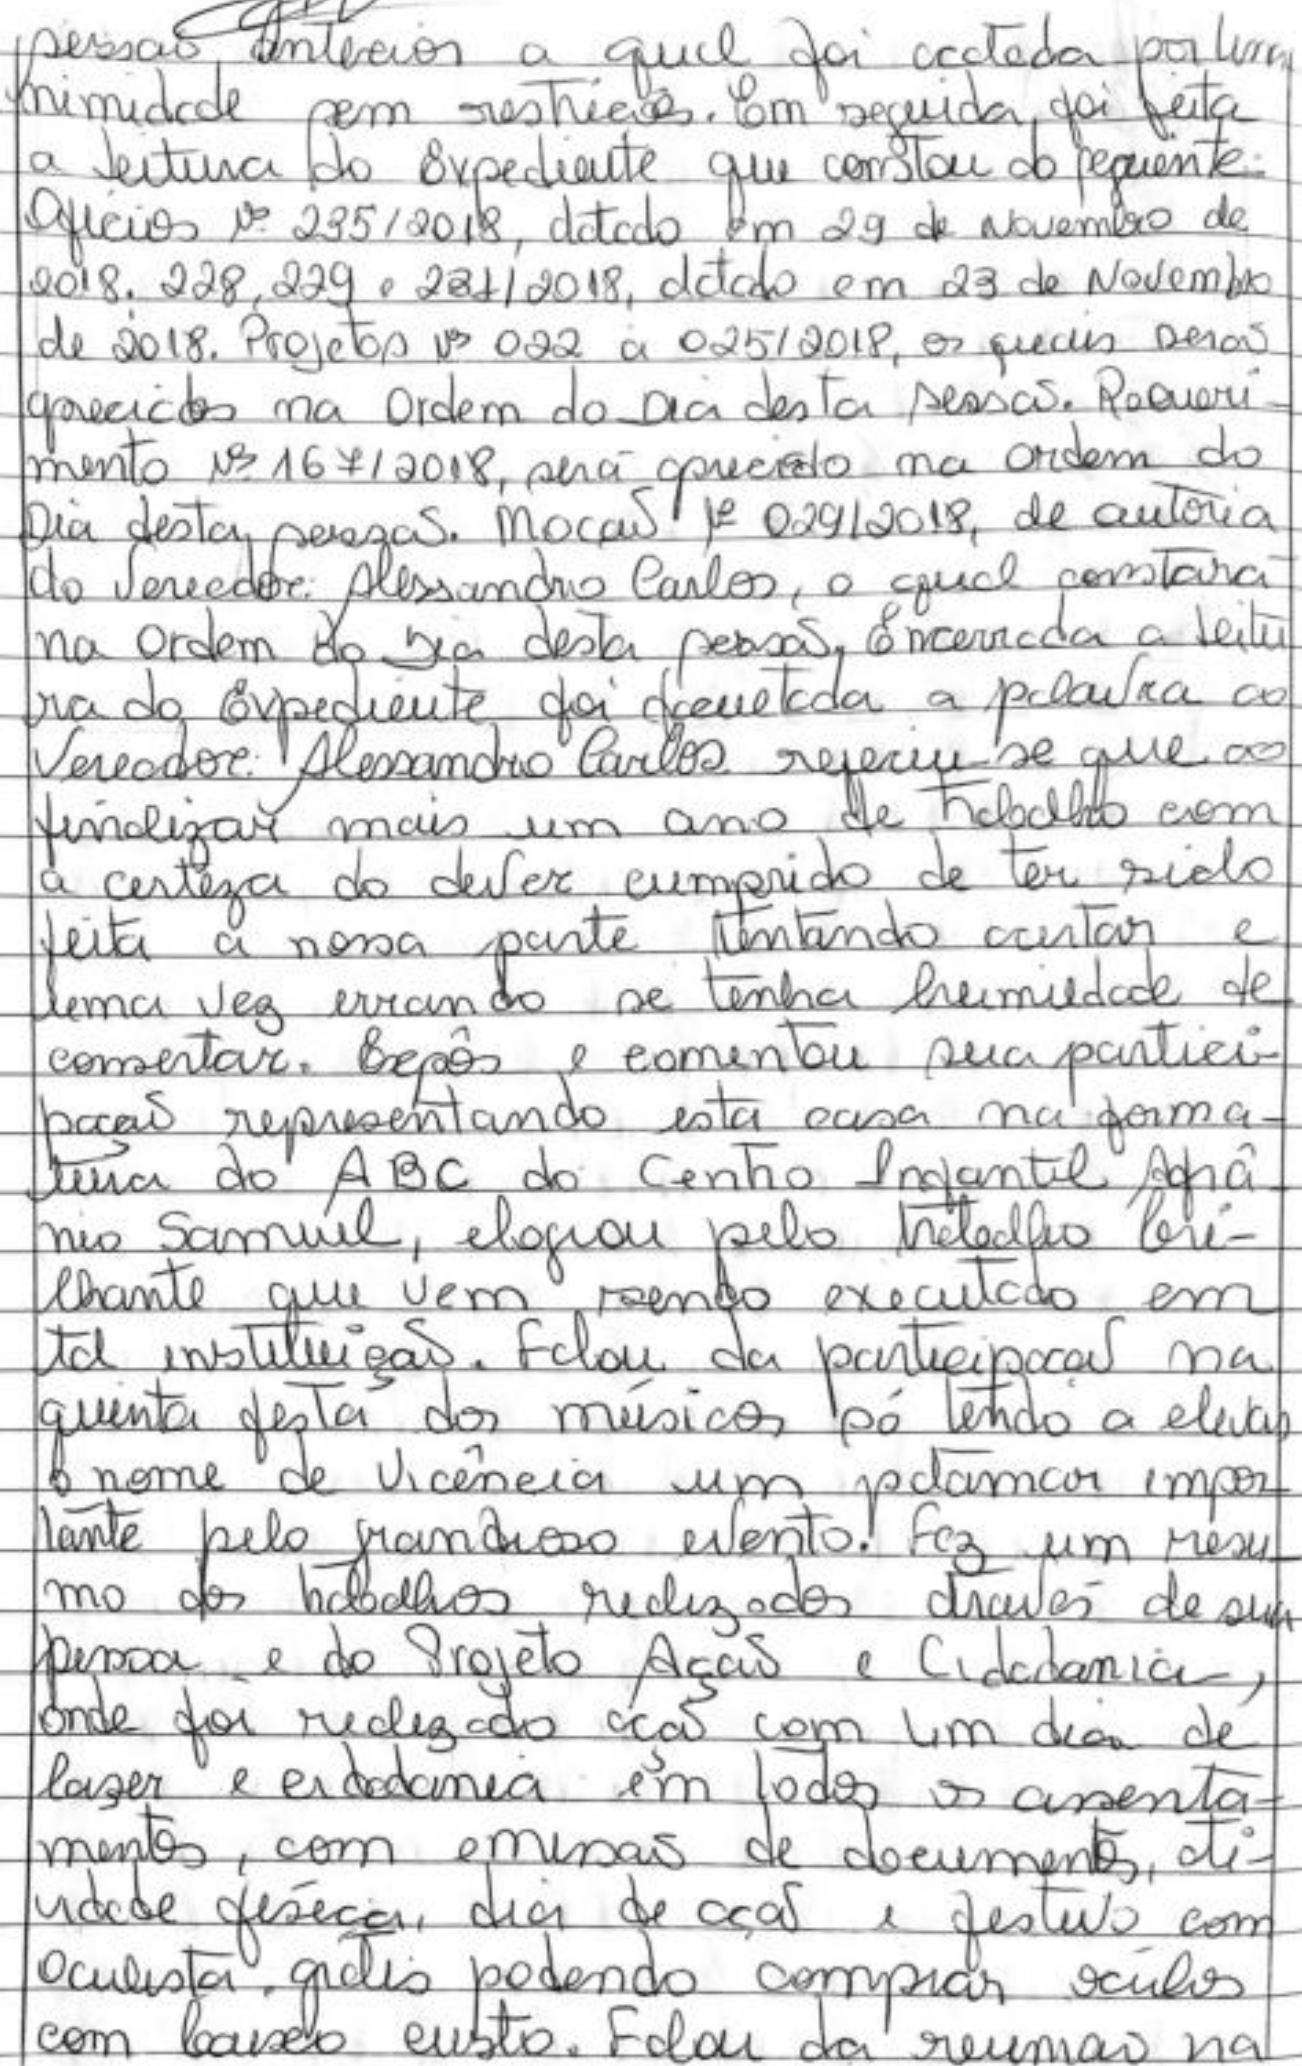 sessão anterior a qual foi acatada por una
nimidade sem restrições. Em seguida, foi feita
a leitura do Expediente que constou do seguinte:
Ofícios Nº 235/2018, datado em 29 de Novembro de
2018. 228, 229 e 231/2018, datado em 23 de Novembro
de 2018. Projetos Nº 022 a 025/2018, os quais serão
apreciados na Ordem do Dia desta sessão. Requeri-
mento Nº 167/2018, será apreciado na ordem do
Dia desta sessão. Moção Nº 029/2018, de autoria
do Vereador: Alessandro Carlos, o qual constará
na Ordem do Dia desta sessão, Encerrada a leitu
ra do Expediente foi facultada a palavra ao
Vereador: Alessandro Carlos referiu-se que ao
finalizar mais um ano de trabalho com
a certeza do dever cumprido de ter sido
feita a nossa parte tentando acertar e
uma vez errando se tenha humildade de
consertar. Expôs e comentou sua partici-
pação representando esta casa na forma-
tura do ABC do Centro Infantil Afrâ-
nio Samuel, elogiou pelo trabalho bri-
lhante que vem sendo executado em
tal instituição. Falou da participação na
quinta festa dos músicos só tendo a elevar
o nome de Vicência um patamar impor
tante pelo grandioso evento. Fez um resu-
mo dos trabalhos realizados através de sua
pessoa e do Projeto Ação e Cidadania,
onde foi realizado ação com um dia de
lazer e cidadania em todos os assenta-
mentos, com emissão de documentos, ati-
vidade física, dia de ação e festivo com
oculista grátis podendo comprar óculos
com baixo custo. Falou da reunião na